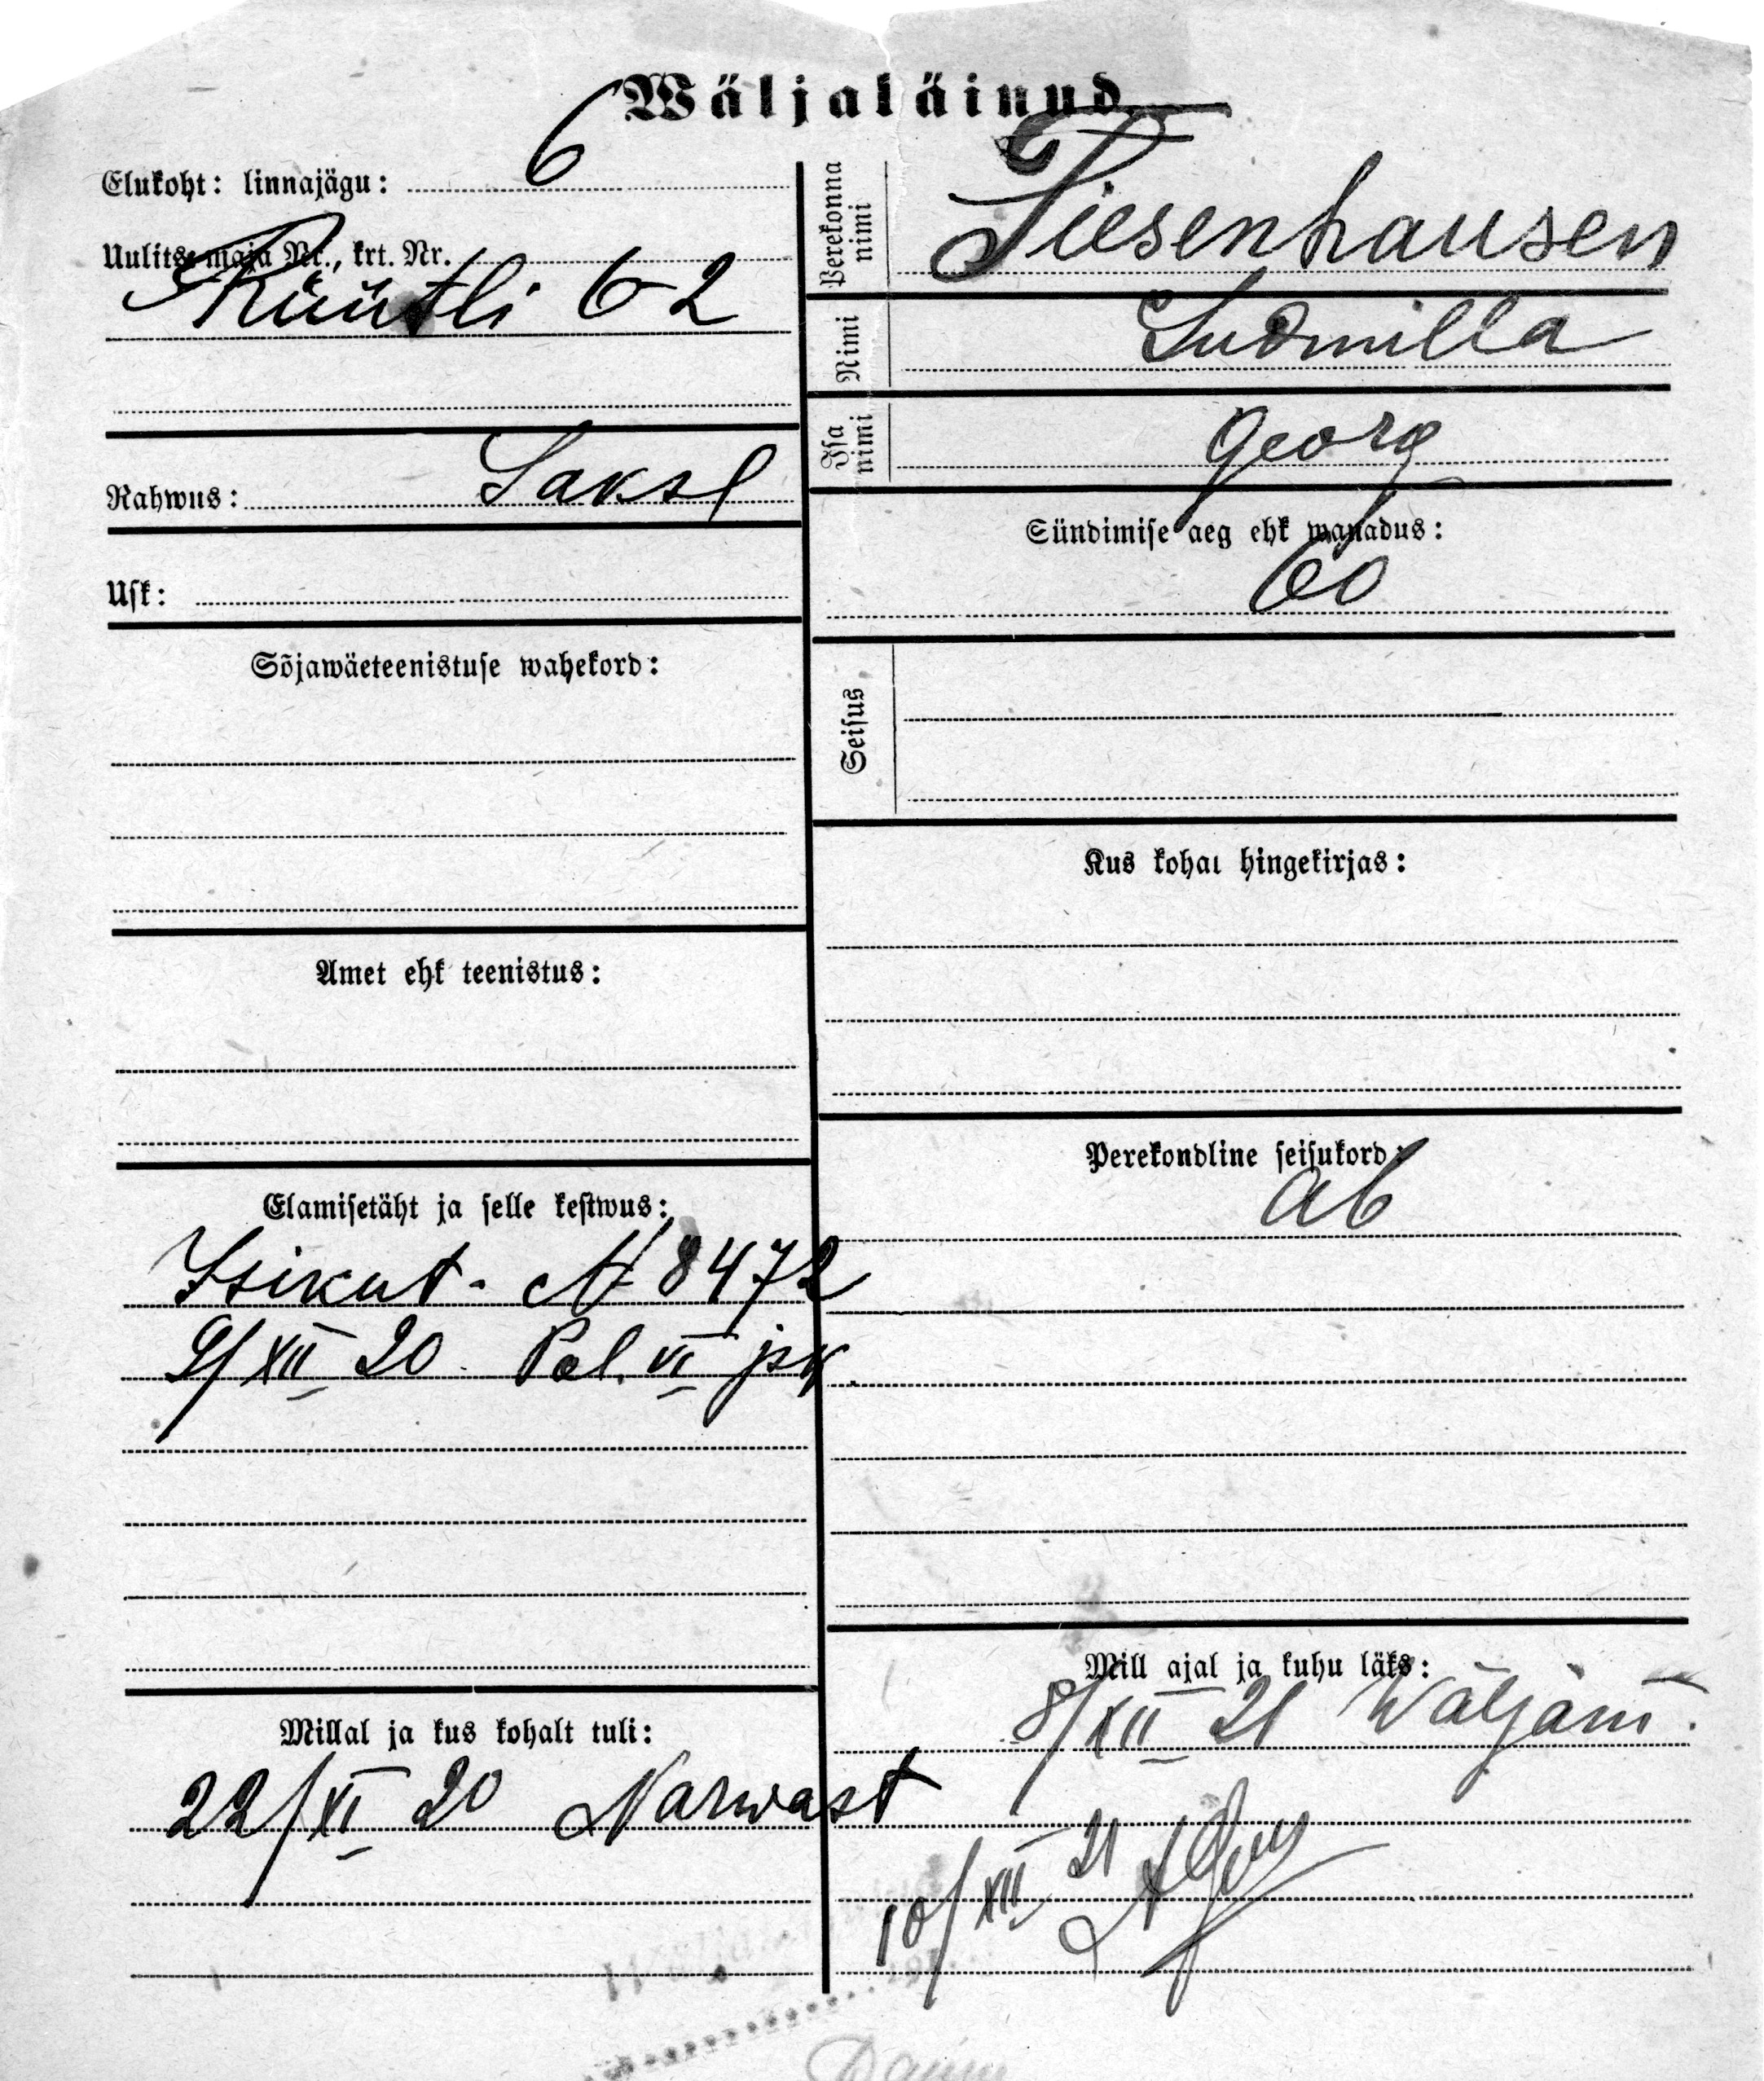 Wäljaläinud
Elukoht: linnajägu: 6
Uulits, maja Nr., krt. Nr.
Rüütli 62
Rahwus: Saksl
Usk:
Sõjawäeteenistuse wahekord:
Amet ehk teenistus:
Elamisetäht ja selle kestwus:
Isikut. N 8472
9/XII 20. Pol. VI jsk.
Millal ja kus kohalt tuli:
22/XI 20 Narwast
Perekonna nimi
Tiesenhausen
Nimi
Ludmilla
Isa nimi
Georg
Sündimise aeg ehk wanadus:
60
Seisus
Kus kohal hingekirjas:
Perekondline seisukord:
ab
Mill ajal ja kuhu läks:
8/XII 21 Wäljam.
10/XII 21